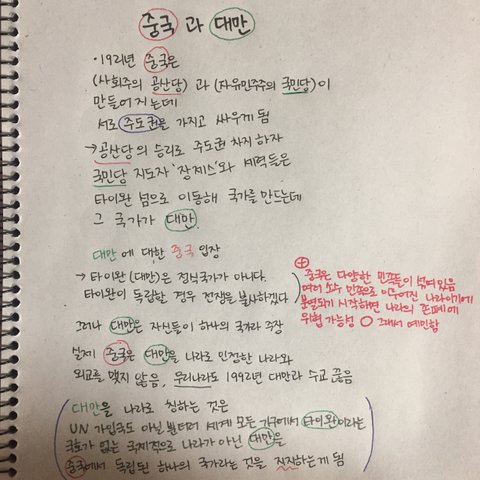 중국 과 대만
· 1921년 중국은
(사회주의 공산당) 과 (자유민주주의 국민당)이
만들어 지는데
서로 주도권을 가지고 싸우게 됨
→ 공산당의 승리로 주도권 차지 하자
국민당 지도자 '장제스'와 세력들은
타이완 섬으로 이동해 국가를 만드는데
그 국가가 대만
대만 에 대한 중국 입장
→ 타이완 (대만)은 정식국가가 아니다.
타이완이 독립할 경우 전쟁을 불사하겠다
⊕ 중국은 다양한 민족들이 섞여있음
여러 소수 민족으로 이루어진 나라이기에
분열되기 시작하면 나라의 존폐에
위협 가능성 O 그래서 예민함
그러나 대만은 자신들이 하나의 국가라 주장
실제 중국은 대만을 나라로 인정한 나라와
외교를 맺지 않음, 우리나라도 1992년 대만과 수교 끊음
(대만을 나라로 칭하는 것은
UN 가입국도 아닐 뿐더러 세계 모든 기구에서 타이완이라는
국호가 없는 국제적으로 나라가 아닌 대만을
중국에서 독립된 하나의 국가라는 것을 지지하는게 됨)